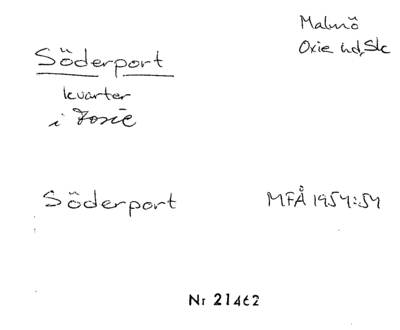 Malmö
Oxie hd, Sk
Söderport
kvarter
i Fosie
Söderport
MFÅ 1954:54
Nr 21462